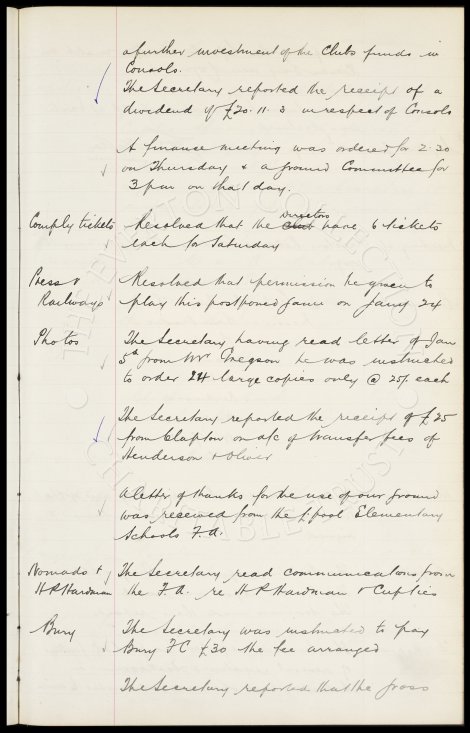 a further investment of the Clubs funds in
Consols.
The Secretary reported the receipt of a
dividend of £20. 11. 3 in respect of Consols
A finance meeting was ordered for 2.30
on Thursday & a ground Committee for
3 pm on that day.
Comply tickets Resolved that the Club Directors have 6 tickets
each for Saturday
Press v Resolved that permission be given to
Railways play this postponed game on Jany 24
Photos The Secretary having read letter of Jan
5th from Mr Megson he was instructed
to order 24 large copies only @ 25/. each
The Secretary reported the receipt of £25
from Clapton on a/c of transfer fees of
Henderson & Oliver
A letter of thanks for the use of our ground
was received from the L'pool Elementary
Schools F.A.
Nomads & The Secretary read communications from
H P Hardman the F.A. re H P Hardman & Cupties
Bury The Secretary was instructed to pay
Bury FC £30 the fee arranged
The Secretary reported that the gross
THE EVERTON COLLECTION
CHARITABLE TRUST